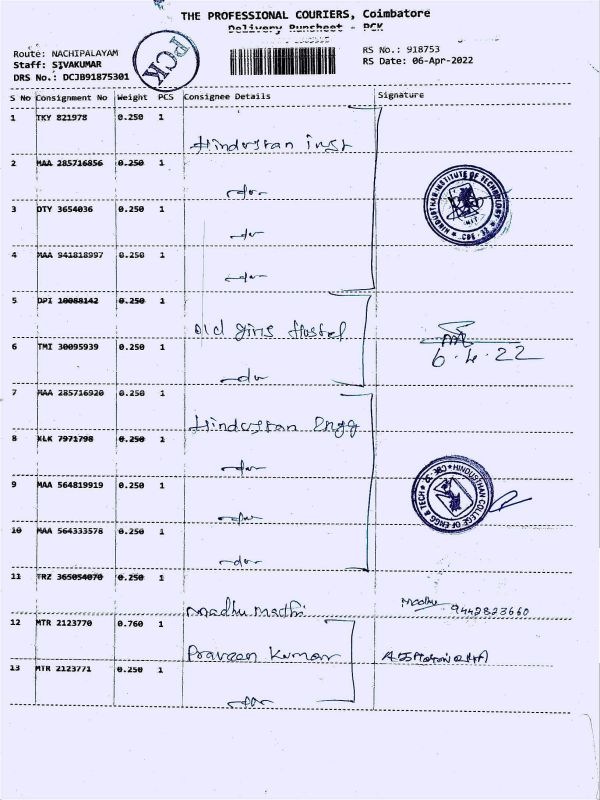 THE PROFESSIONAL COURIERS, Coimbatore
Delivery Runsheet - PCK
Route: NACHIPALAYAM
Staff: SIVAKUMAR
DRS No.: DCJB91875301
PCK
RS No.: 918753
RS Date: 06-Apr-2022
S No Consignment No Weight PCS Consignee Details Signature
1 TKY 821978 0.250 1
Hindustan inst
2 MAA 285716856 0.250 1
-do-
3 DTY 3654036 0.250 1
-do-
4 MAA 941818997 0.250 1
-do-
HINDUSTHAN INSTITUTE OF TECHNOLOGY
5 DPI 10088142 0.250 1
Old girls Hostel
6 TMI 30095939 0.250 1
-do-
6.4.22
7 MAA 285716920 0.250 1
Hindustan Engg
8 KLK 7971798 0.250 1
-do-
9 MAA 564819919 0.250 1
-do-
10 MAA 564333578 0.250 1
-do-
HINDUSTHAN COLLEGE OF ENGG & TECH
11 TRZ 365054070 0.250 1
Madhu Madhi Madhu 9442823660
12 MTR 2123770 0.760 1
Praveen Kumar
13 MTR 2123771 0.250 1
-do-